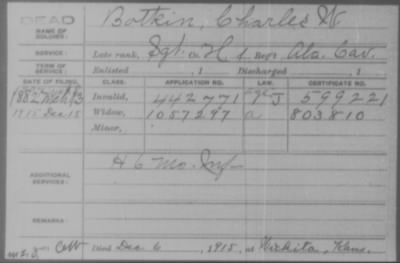 DEAD
NAME OF SOLDIER: Botkin, Charles W
SERVICE: Late rank, Sgt. Co. H, 1 Reg't Ala. Cav.
TERM OF SERVICE: Enlisted , 1 Discharged , 1
DATE OF FILING. CLASS. APPLICATION NO. LAW. CERTIFICATE NO.
1882 Mch 13 Invalid, 442771 J 599221
1915 Dec 15 Widow, 1057297 a. 803810
Minor,
ADDITIONAL SERVICES: H 6 Mo. Inf
REMARKS:
CW Died Dec 6, 1915, at Wichita, Kans.